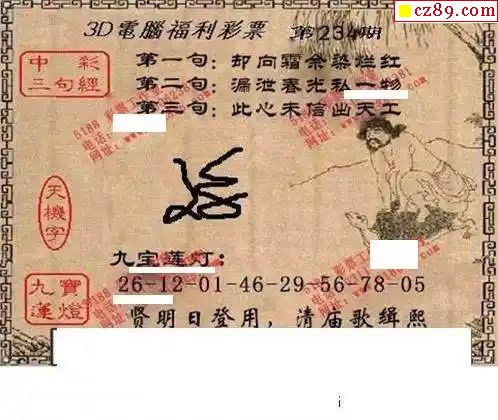 cz89.com
3D電腦福利彩票 第234期
中彩
三句經
第一句: 却向霜余染烂红
第二句: 漏泄春光私一物
第三句: 此心未信出天工
天機字
九宝莲灯:
九寶蓮燈
26-12-01-46-29-56-78-05
贤明日登用, 清庙歌缉熙
i